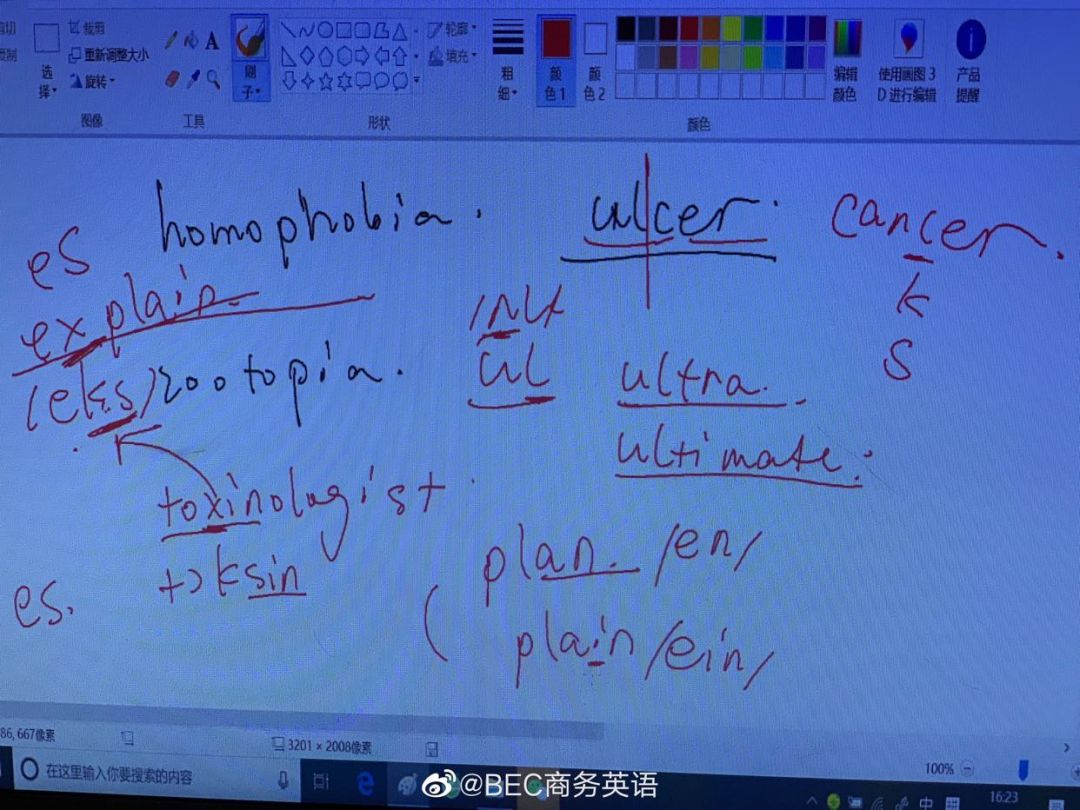 剪切
复制
选择
裁剪
重新调整大小
旋转
图像
A
工具
刷子
形状
轮廓
填充
粗细
颜色1
颜色2
颜色
编辑颜色
使用画图 3D 进行编辑
产品提醒
homophobia.
ulcer.
cancer.
k
s
es
explain
/eks/
zootopia.
ul
ultra.
ultimate.
toxinologist
tɔksin
es.
plan. /en/
plain /ein/
86, 667像素
3201 × 2008像素
100%
在这里输入你要搜索的内容
@BEC商务英语
中
16:23